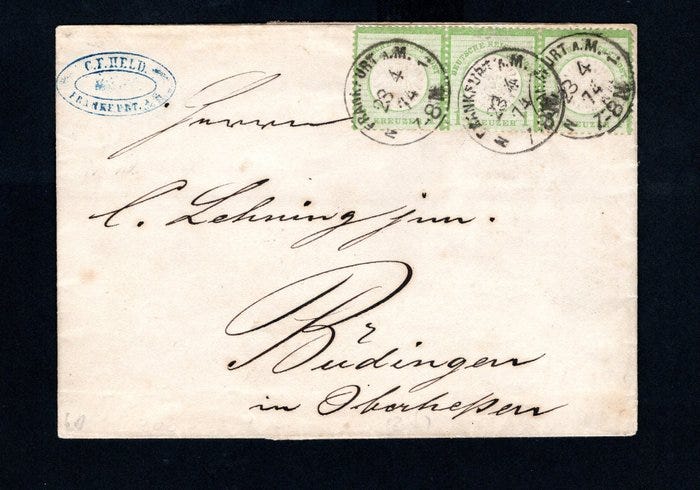 C.F. HELD.
FRANKFURT. A. M.
DEUTSCHE REICHS
KREUZER
1 KREUZER 1
KREUZER
FRANKFURT A.M. 1
23 4
74
7-8 N
N
FRANKFURT A.M. 1
23 4
74
7-8 N
N
FURT A.M. 1
23 4
74
7-8 N
N
Herrn
C. Lehning jun.
Büdingen
in Oberheßen